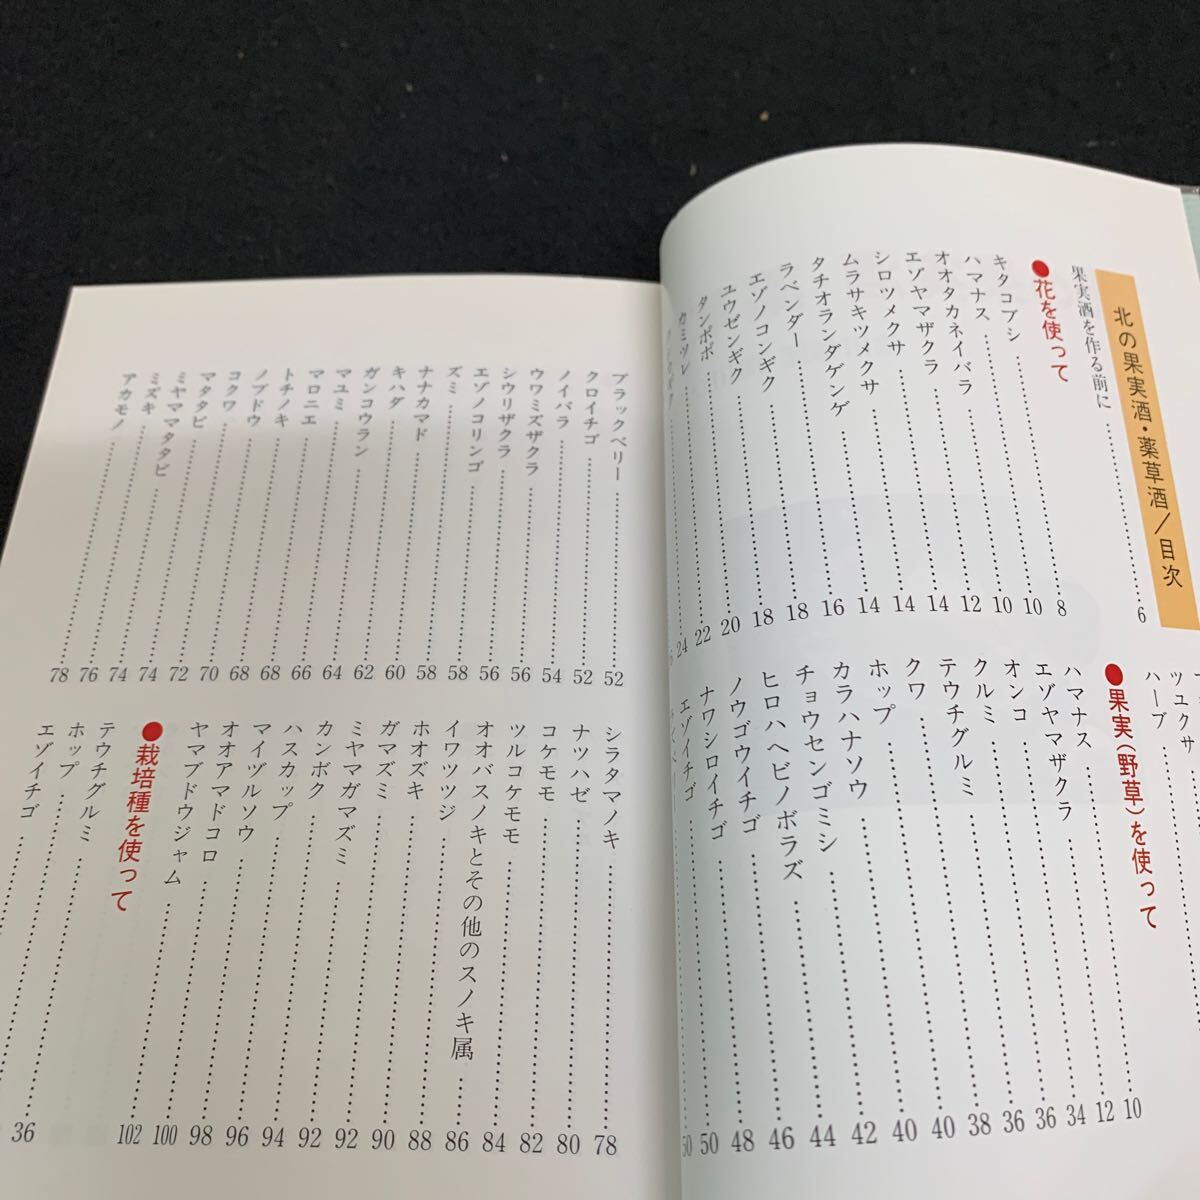 北の果実酒・薬草酒/目次
果実酒を作る前に……6
●花を使って 8
キタコブシ……10
ハマナス……10
オオタカネイバラ……12
エゾヤマザクラ……14
シロツメクサ……14
ムラサキツメクサ……14
タチオランダゲンゲ……16
ラベンダー……18
エゾノコンギク……18
ユウゼンギク……20
タンポポ……22
カミツレ……24
ツユクサ……
ハーブ……
●果実(野草)を使って
ハマナス……10
エゾヤマザクラ……12
オンコ……34
クルミ……36
テウチグルミ……36
クワ……38
ホップ……40
カラハナソウ……40
チョウセンゴミシ……42
ヒロハヘビノボラズ……44
ノウゴウイチゴ……46
ナワシロイチゴ……48
エゾイチゴ……50
50
ブラックベリー……52
クロイチゴ……52
ノイバラ……54
ウワミズザクラ……56
シウリザクラ……56
エゾノコリンゴ……58
ズミ……58
ナナカマド……60
キハダ……62
ガンコウラン……64
マユミ……66
マロニエ……68
トチノキ……68
ノブドウ……70
コクワ……72
マタタビ……74
ミヤママタタビ……74
ミズキ……76
アカモノ……78
シラタマノキ……78
ナツハゼ……80
コケモモ……82
ツルコケモモ……84
オオバスノキとその他のスノキ属……86
イワツツジ……88
ホオズキ……90
ガマズミ……92
ミヤマガマズミ……92
カンボク……94
ハスカップ……96
マイヅルソウ……98
オオアマドコロ……100
ヤマブドウジャム……102
●栽培種を使って
テウチグルミ……36
ホップ……
エゾイチゴ……